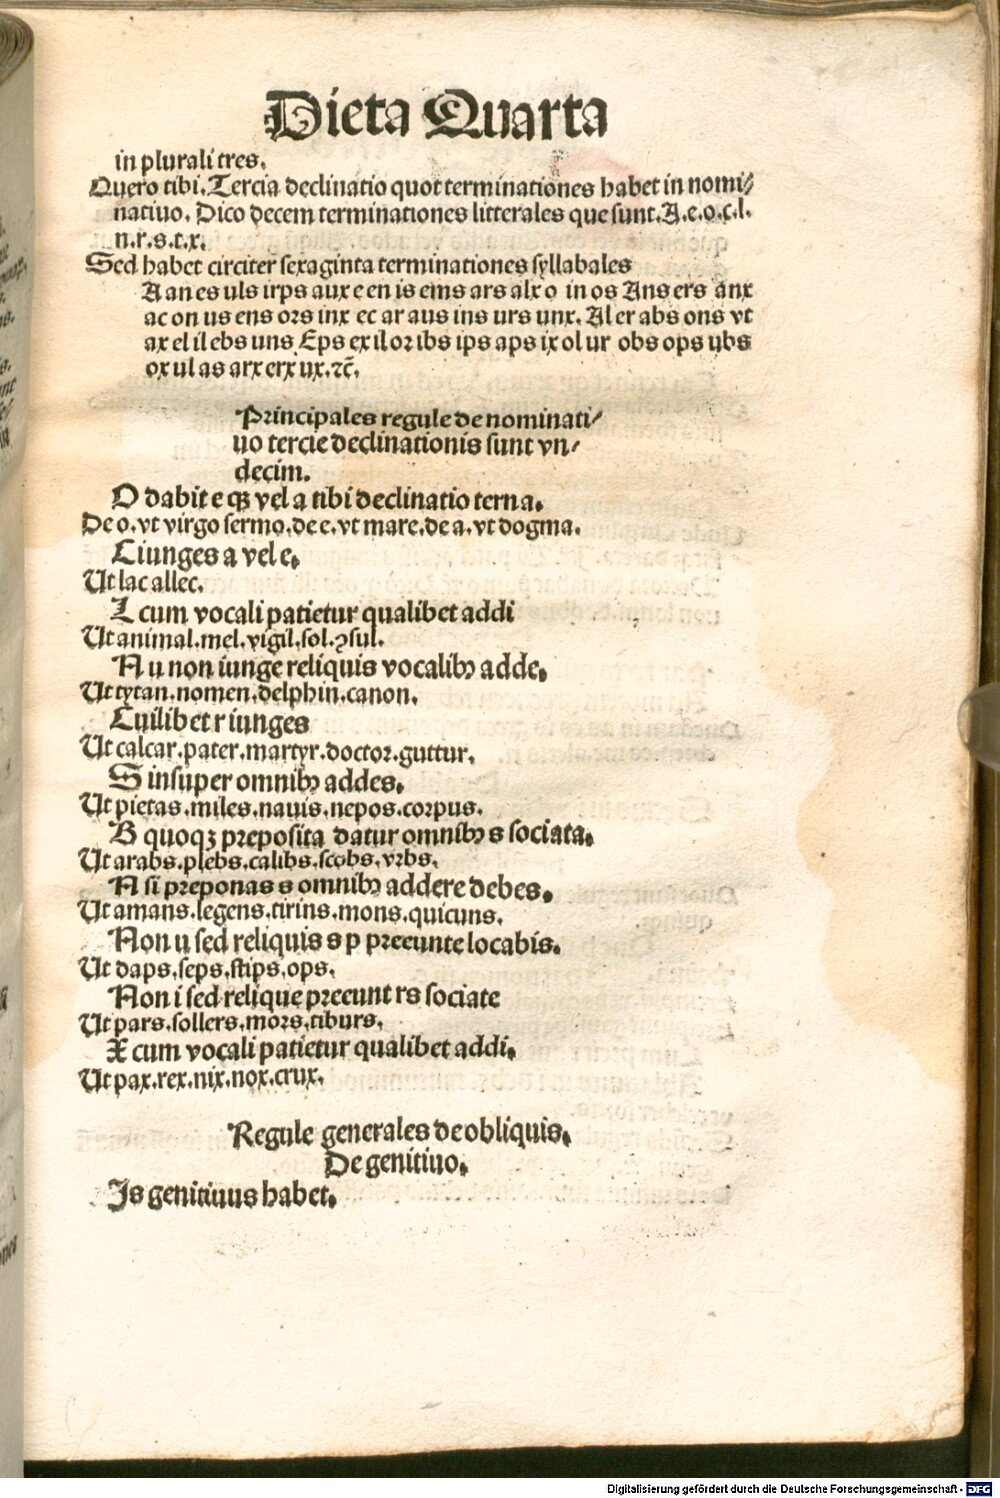 Dieta Quarta
in plurali tres.
Quero tibi. Tercia declinatio quot terminationes habet in nomi⸗
natiuo. Dico decem terminationes litterales que sunt. A.e.o.c.l.
n.r.s.t.x.
Sed habet circiter sexaginta terminationes syllabales
A an es uls irps aux e en is ems ars alx o in os Ans ers anx
ac on us ens ors inx ec ar aus ins urs unx. Al er abs ons vt
ax el il ebs uns Eps ex il or ibs ips aps ix ol ur obs ops ubs
ox ul as arx erx ux.⁊c̄.
Principales regule de nominati⸗
uo tercie declinationis sunt vn⸗
decim.
O dabit e qꝫ vel a tibi declinatio terna.
De o. vt virgo sermo. de e. vt mare. de a. vt dogma.
C iunges a vel e.
Ut lac allec.
L cum vocali patietur qualibet addi
Ut animal. mel. vigil. sol. ꝯsul.
N u non iunge reliquis vocalibꝫ adde.
Ut tytan. nomen. delphin. canon.
Cuilibet r iunges
Ut calcar. pater. martyr. doctor. guttur.
S insuper omnibꝫ addes.
Ut pietas. miles. nauis. nepos. corpus.
B quoqꝫ preposita datur omnibꝫ s sociata.
Ut arabs. plebs. calibs. scobs. vrbs.
N si preponas s omnibꝫ addere debes.
Ut amans. legens. tirins. mons. quicuns.
Non u sed reliquis s p preeunte locabis.
Ut daps. seps. stips. ops.
Non i sed relique preeunt rs sociate
Ut pars. sollers. mors. tiburs.
X cum vocali patietur qualibet addi.
Ut pax. rex. nix. nox. crux.
Regule generales de obliquis.
De genitiuo.
Is genitiuus habet.
Digitalisierung gefördert durch die Deutsche Forschungsgemeinschaft - DFG